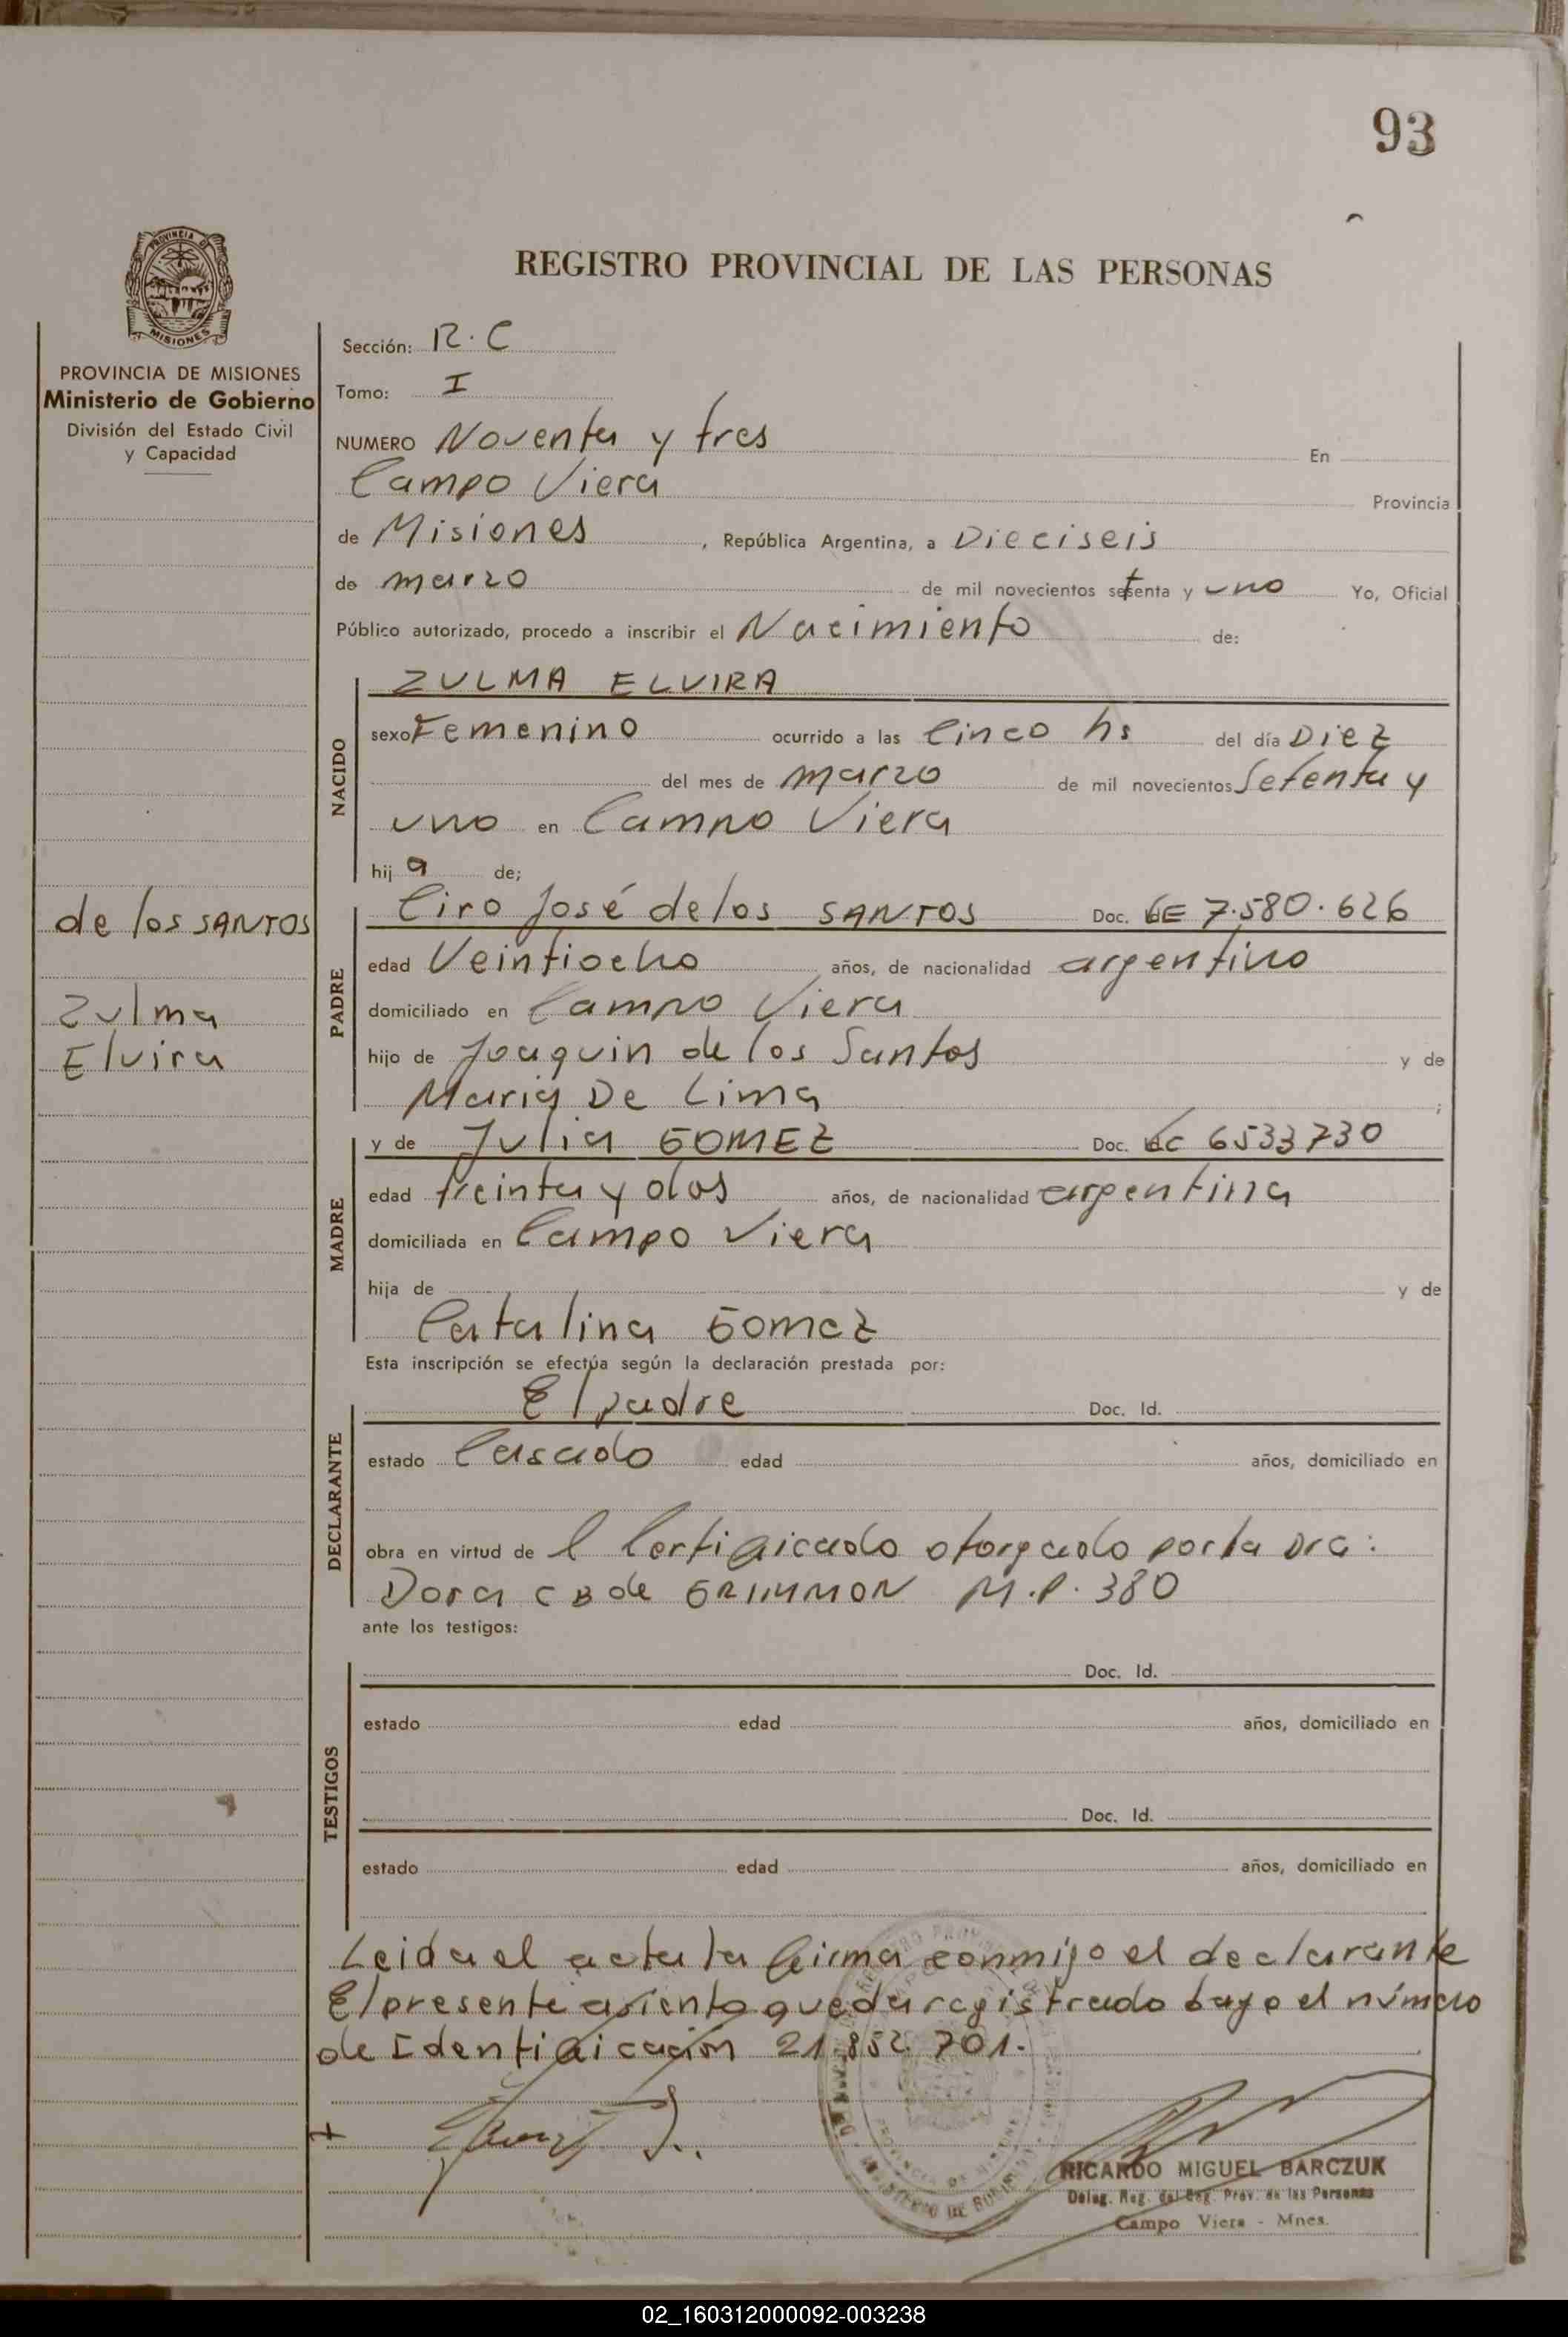 93
REGISTRO PROVINCIAL DE LAS PERSONAS
PROVINCIA DE MISIONES
PROVINCIA DE MISIONES
Ministerio de Gobierno
División del Estado Civil
y Capacidad
de los SANTOS
Zulma
Elvira
Sección: R.C
Tomo: I
NUMERO Noventa y tres En
Campo Viera Provincia
de Misiones, República Argentina, a Dieciseis
de marzo de mil novecientos setenta y uno Yo, Oficial
Público autorizado, procedo a inscribir el Nacimiento de:
NACIDO
ZULMA ELVIRA
sexo Femenino ocurrido a las Cinco hs del día Diez
del mes de marzo de mil novecientos Setenta y
uno en Campo Viera
hija de;
PADRE
Ciro José de los SANTOS Doc. 7.580.626
edad Veintiocho años, de nacionalidad argentino
domiciliado en Campo Viera
hijo de Joaquin de los Santos y de
Maria De Lima ;
MADRE
y de Julia GOMEZ Doc. 6533730
edad treinta y dos años, de nacionalidad argentina
domiciliada en Campo Viera
hija de y de
Catalina Gomez
Esta inscripción se efectúa según la declaración prestada por:
DECLARANTE
El padre Doc. Id.
estado Casado edad años, domiciliado en
obra en virtud de l Certificado otorgado por la Dra:
Dora C B de GRIMMON M.P. 380
ante los testigos:
TESTIGOS
Doc. Id.
estado edad años, domiciliado en
Doc. Id.
estado edad años, domiciliado en
Leida el acta la firma conmigo el declarante
El presente asiento queda registrado bajo el número
de Identificación 21.852.701.
RICARDO MIGUEL BARCZUK
Deleg. Reg. del Reg. Prov. de las Personas
Campo Viera - Mnes.
02_160312000092-003238